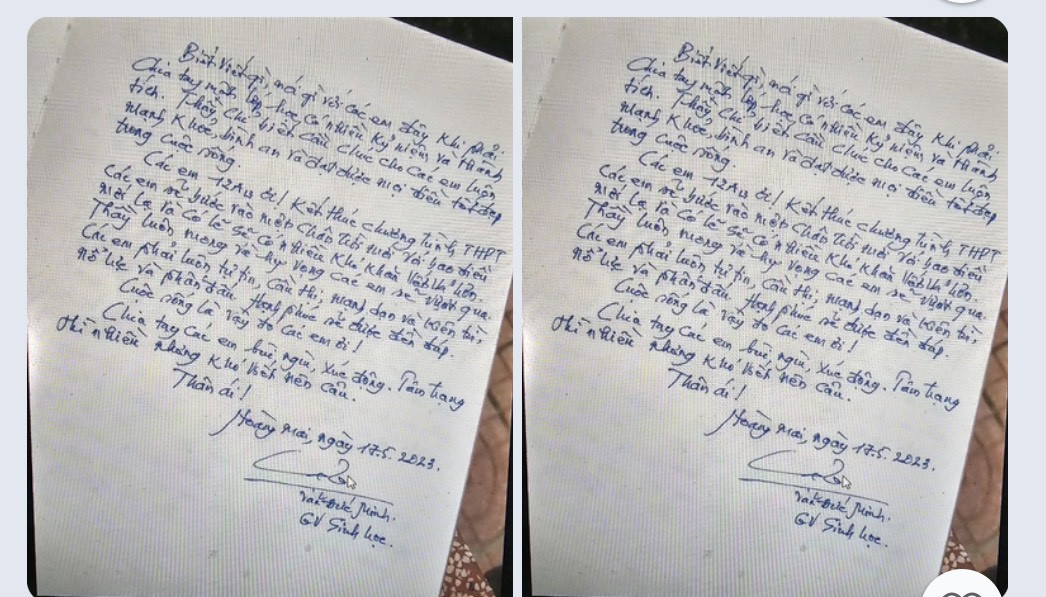 Biết viết gì, nói gì với các em đây khi phải
Chia tay một lớp học có nhiều kỷ niệm và thành
tích. Thầy chỉ biết cầu chúc cho các em luôn
mạnh khoẻ, bình an và đạt được mọi điều tốt đẹp
trong cuộc sống.
Các em 12A ơi! Kết thúc chương trình THPT
Các em sẽ bước vào một chân trời mới với bao điều
mới lạ và có lẽ sẽ có nhiều khó khăn hơn.
Thầy luôn mong và hy vọng các em sẽ vượt qua.
Các em phải luôn tự tin, cầu thị, mạnh dạn và kiên trì,
nổ lực và phấn đấu. Hạnh phúc sẽ được đền đáp.
Cuộc sống là vậy đó các em ơi!
Chia tay các em bùi ngùi, xúc động. Tâm trạng
thì nhiều nhưng khó viết nên câu.
Thân ái!
Hoàng Mai, ngày 17.5.2023.
Đức Minh.
GV Sinh học.
Biết viết gì, nói gì với các em đây khi phải
Chia tay một lớp học có nhiều kỷ niệm và thành
tích. Thầy chỉ biết cầu chúc cho các em luôn
mạnh khoẻ, bình an và đạt được mọi điều tốt đẹp
trong cuộc sống.
Các em 12A ơi! Kết thúc chương trình THPT
Các em sẽ bước vào một chân trời mới với bao điều
mới lạ và có lẽ sẽ có nhiều khó khăn hơn.
Thầy luôn mong và hy vọng các em sẽ vượt qua.
Các em phải luôn tự tin, cầu thị, mạnh dạn và kiên trì,
nổ lực và phấn đấu. Hạnh phúc sẽ được đền đáp.
Cuộc sống là vậy đó các em ơi!
Chia tay các em bùi ngùi, xúc động. Tâm trạng
thì nhiều nhưng khó viết nên câu.
Thân ái!
Hoàng Mai, ngày 17.5.2023.
Đức Minh.
GV Sinh học.